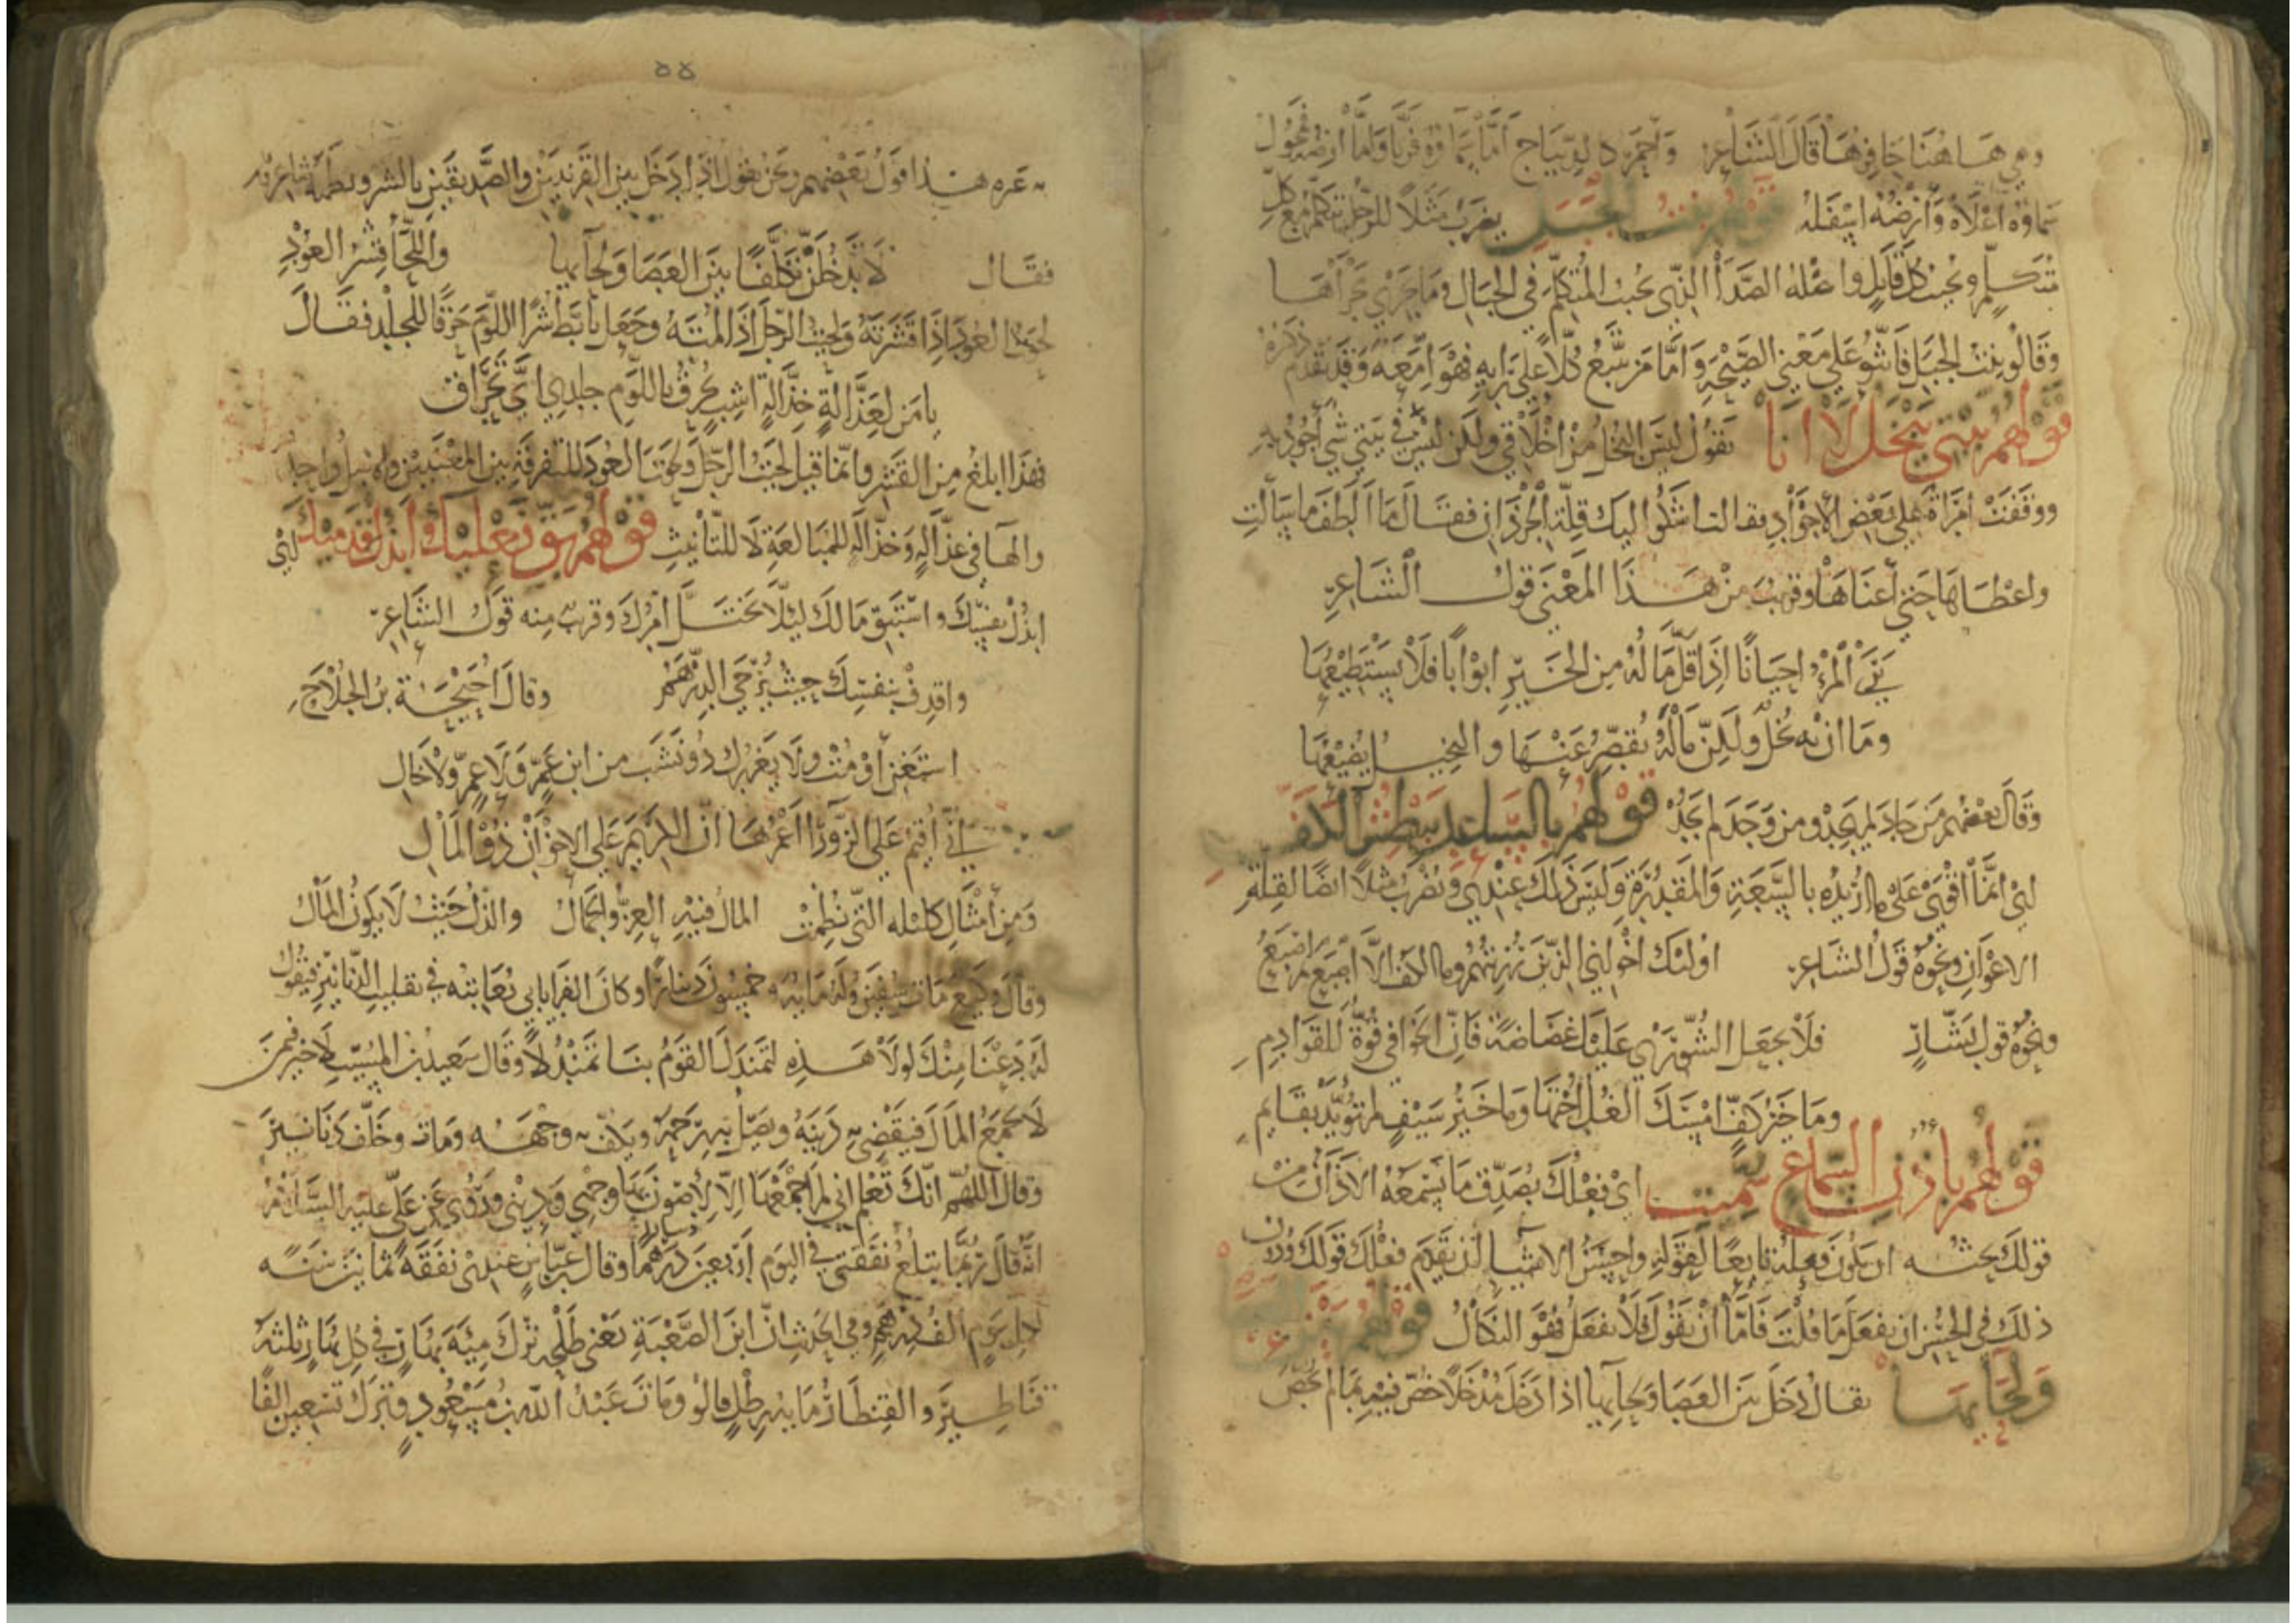 وهي هاهنا حافرها قال الشاعر واحمر كالديباج اما سماؤه فريا واما ارضه فمحول
سماؤه اعلاه وارضه اسفله قولهم بنت الجبل يضرب مثلا للرجل يتكلم مع كل
متكلم ويجيب كل قايل واصله الصدا الذي يجيب المتكلم في الجبال وما جري مجراها
وقالو بنت الجبل فانثو علي معني الصيحة واما من يتبع كلا علي رايه فهو امعه وقد تقدم ذكره
قولهم بيتي يبخل لا انا تقول ليس البخل من اخلاقي ولكن ليس في بيتي شي اجود به
ووقفت امراة علي بعض الاجواد فقالت اشكوا اليك قلة الجرذان فقال ما الطف ما سالت
واعطاها حتي أغناها وقريب من هذا المعني قول الشاعر
يري المرء احيانا اذا قل ماله من الخير ابوابا فلا يستطيعها
وما ان به بخل ولكن ماله يقصر عنها والبخيل يضيعها
وقال بعضهم من جاد لم يجد ومن وجد لم يجد قولهم بالساعد يبطش الكف
اي انما اقوي علي ما اريده بالسعة والمقدرة وليس ذلك عندي ويضرب مثلا ايضا لقلة
الاعوان ونحوه قول الشاعر اولئك اخواني الذين رزيتهم وما الكف الا اصبع ثم اصبع
ونحوه قول بشار فلا تجعل الشوري عليك غضاضة فان الخوافي قوة للقوادم
وما خير كف امسك الغل اختها وما خير سيف لم يؤيد بقايم
قولهم باذن السماع سميت اي فعلك يصدق ما يسمعه الاذان من
قولك يحثه ان يكون فعله تابعا لقوله واحسن الاشيا ان يقدم فعلك قولك ودون
ذلك في الحسن ان تفعل ما قلت فاما أن تقول فلا تفعل فهو النكال قولهم بين العصا
ولحايها يقال دخل بين العصا ولحايها اذا دخل مدخلا خص فيه بما لم يخص
به غيره هذا قول بعضهم ونحن نقول اذا دخل بين القرينين والصديقين بالشر ونظمه شاعر
فقال لا تدخلن تكلفا بين العصا ولحايها واللحا قشر العود
لحوت العود اذا قشرته ولحيت الرجل اذا لمته وجعل تابط شرا اللوم خرقا للجلد فقال
يا من لعذالة خذالة اشب حرق باللوم جلدي اي تحراق
فهذا ابلغ من القشر وانما قيل لحيت الرجل ولحوت العود للتفرقة بين المعنيين والاصل واحد
والها في عذاله وخذاله للمبالغة لا للتانيث قولهم بق نعليك وابذل قدميك اي
ابذل نفسك واستبق مالك ليلا يختل امرك وقريب منه قول الشاعر
واقذف بنفسك حيث يرجي الدرهم وقال احيحة بن الجلاح
استغن أو مت ولا يغررك ذو نشب من ابن عم ولا عم ولا خال
اني أقيم علي الزوراء اعمرها ان الكريم علي الاخوان ذو المال
ومن أمثال كليله التي نظمت المال فيه العز والجمال والذل حيث لا يكون المال
وقال وكيع مات سفين وله مايه وخمسون دينارا وكان الفريابي يعاتبه في تقليب الدنانير فيقول
له دعنا منك لولا هذه لتمندل القوم بنا تمندلا وقال سعيد بن المسيب لا خير فيمن
لا يجمع المال فيقضي به دينه ويصل به رحمه ويكف به وجهه ومات وخلف دنانير
وقال اللهم انك تعلم اني لم اجمعها الا لأصون بها وجهي وديني وروي عن علي عليه السلام
انه قال ربما يتلغ نفقتي في اليوم اربعين درهما وقال عباس عندي نفقه ثمانين سنه
لكل يوم الف درهم وفي الحديث ان ابن الصعبة يعني طلحه ترك مئه بهار في كل بهار ثلثه
قناطير والقنطار مايه رطل قالو ومات عبد الله بن مسعود وترك تسعين الفا